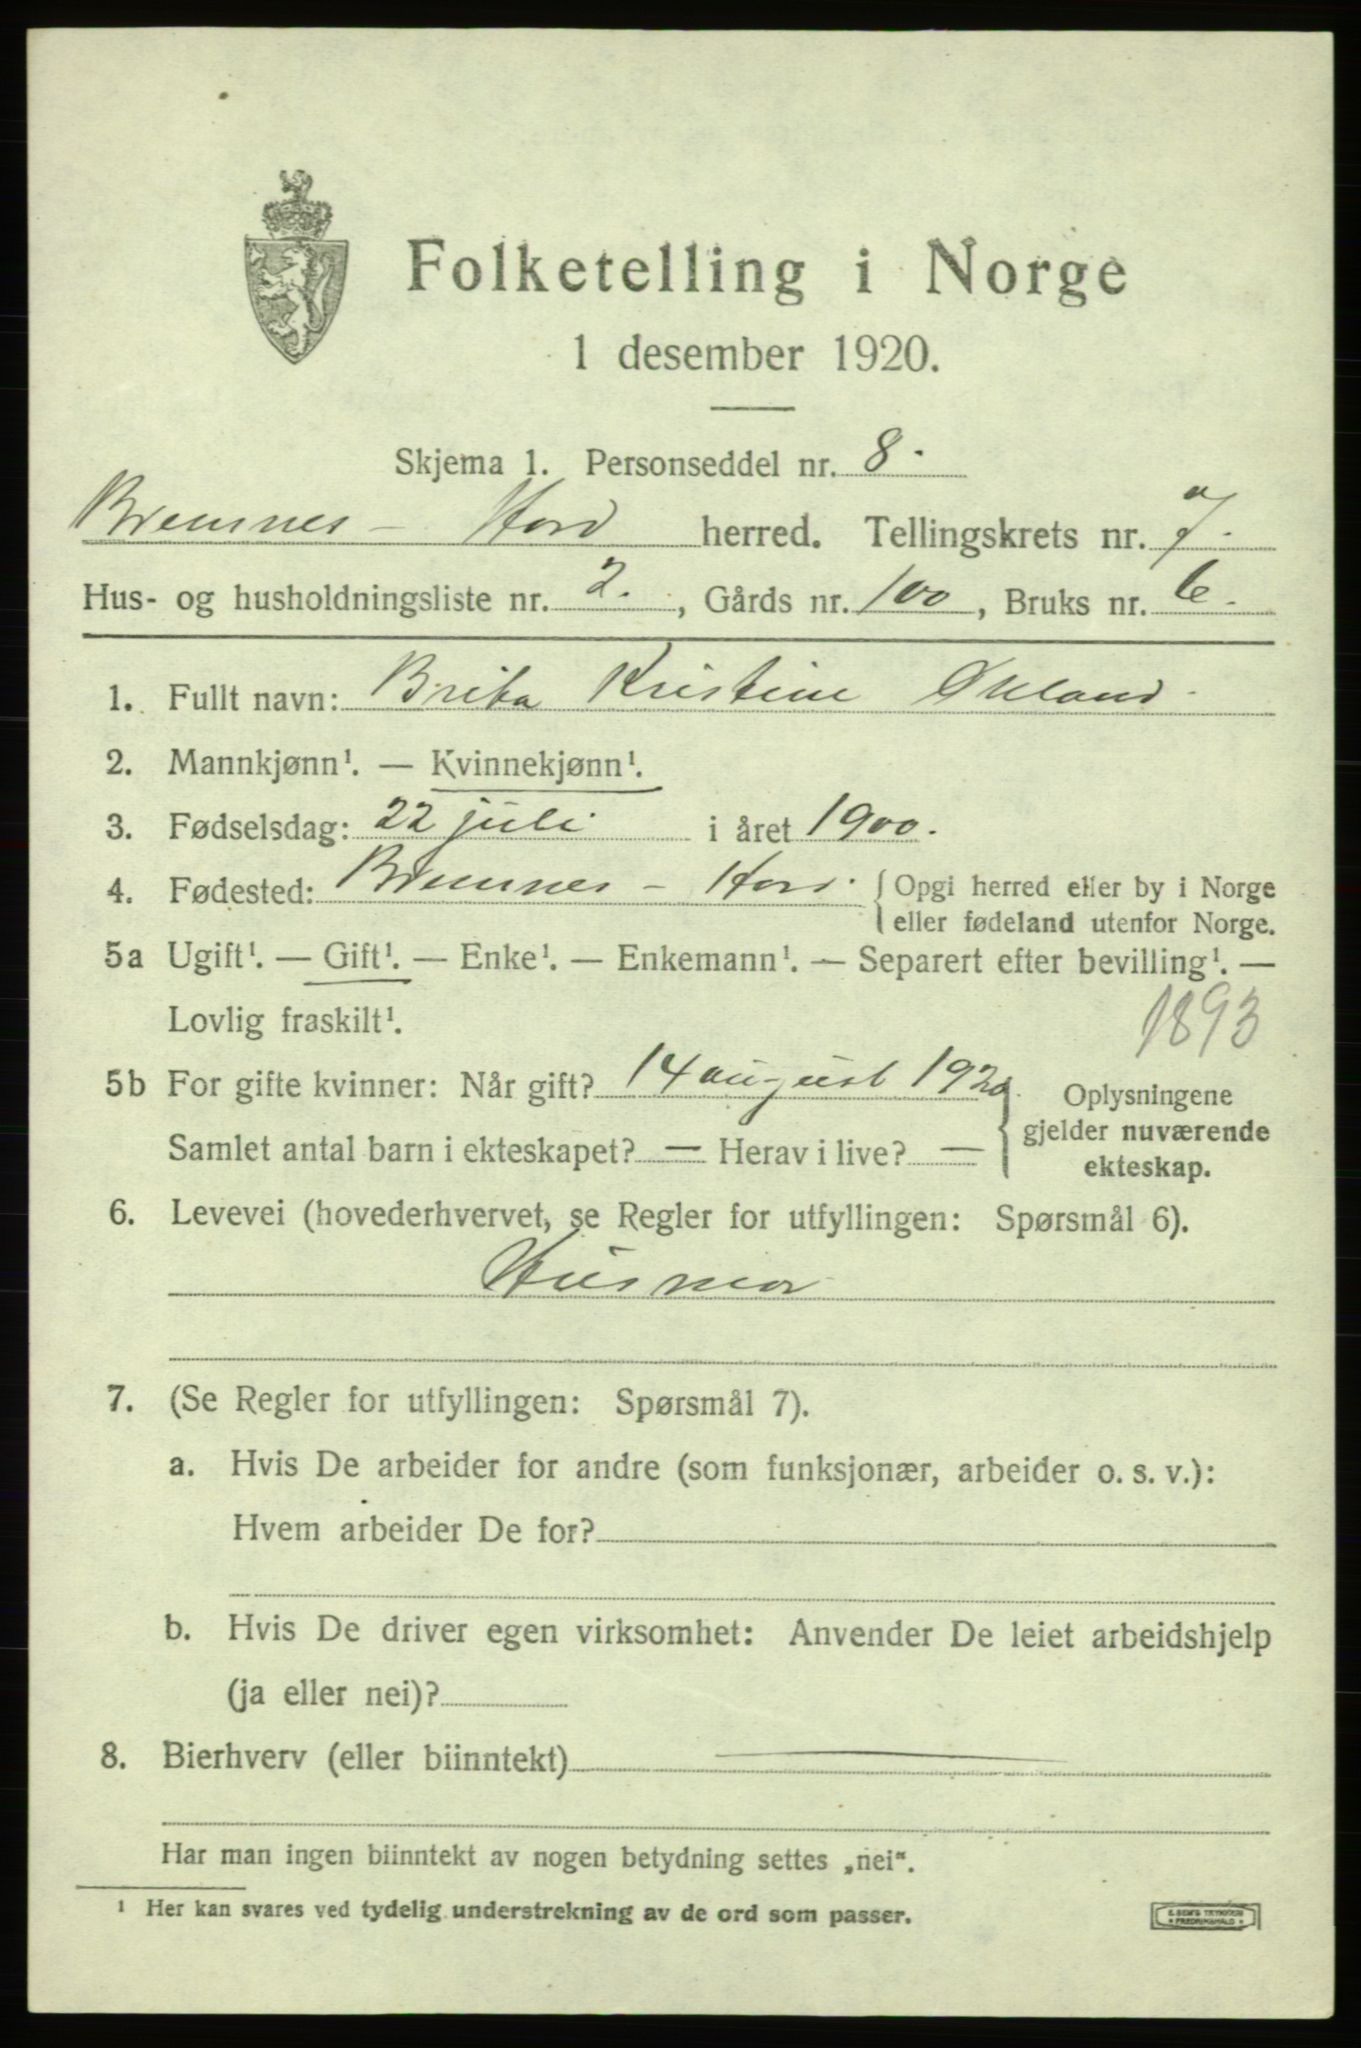 Folketelling i Norge
1 desember 1920.
Skjema 1. Personseddel nr. 8.
Bremnes - Hord herred. Tellingskrets nr. 7.
Hus- og husholdningsliste nr. 2., Gårds nr. 100, Bruks nr. 6.
1. Fullt navn: Brita Kristine Økland
2. Mannkjønn¹. — Kvinnekjønn¹.
3. Fødselsdag: 22 juli i året 1900.
4. Fødested: Bremnes - Hord. { Opgi herred eller by i Norge
eller fødeland utenfor Norge.
5a Ugift¹. — Gift¹. — Enke¹. — Enkemann¹. — Separert efter bevilling¹. —
Lovlig fraskilt¹.
1893
5b For gifte kvinner: Når gift? 14 august 1920. Oplysningene
gjelder nuværende
Samlet antal barn i ekteskapet? — Herav i live? —
ekteskap.
6. Levevei (hovederhvervet, se Regler for utfyllingen: Spørsmål 6).
Husmor
7. (Se Regler for utfyllingen: Spørsmål 7).
a. Hvis De arbeider for andre (som funksjonær, arbeider o. s. v.):
Hvem arbeider De for?
b. Hvis De driver egen virksomhet: Anvender De leiet arbeidshjelp
(ja eller nei)?
8. Bierhverv (eller biinntekt) —
Har man ingen biinntekt av nogen betydning settes „nei".
¹ Her kan svares ved tydelig understrekning av de ord som passer.
E. SEM'S TRYKKERI
• FREDRIKSHALD •